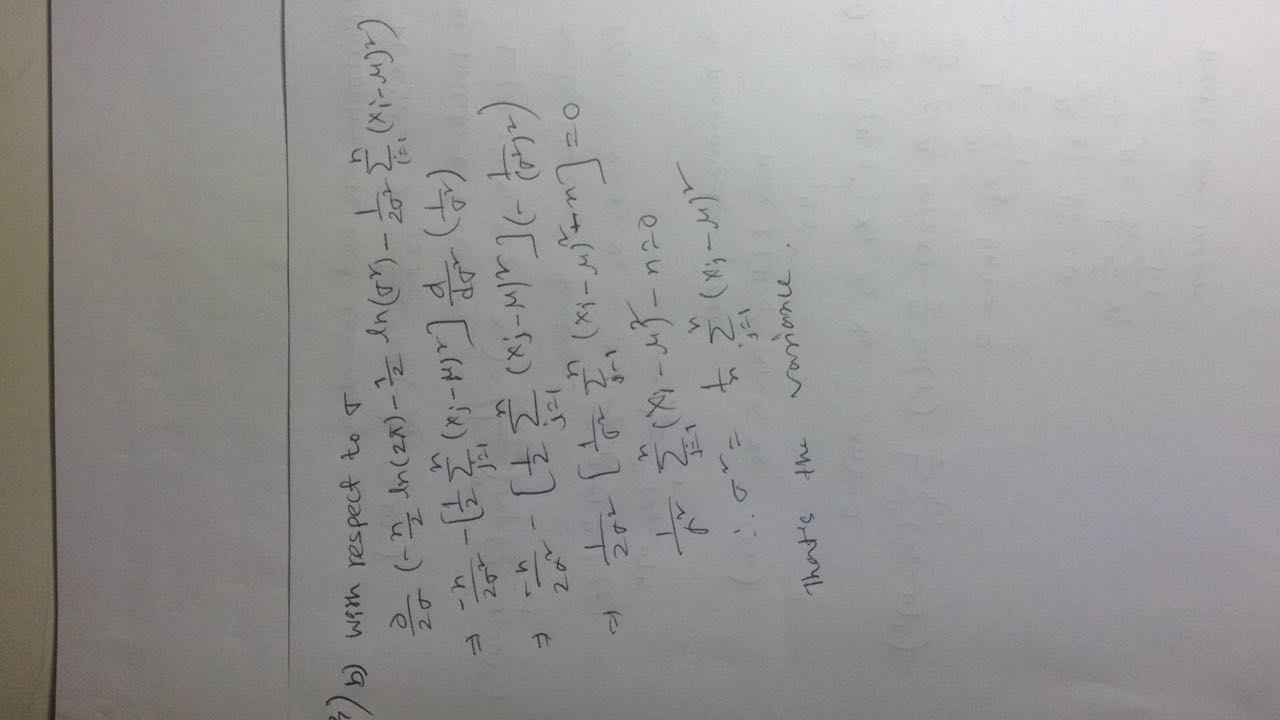 3) b) with respect to σ
∂/∂σ (-n/2 ln(2π) - n/2 ln(σ²) - 1/2σ² Σ_{i=1}^{n} (x_i-μ)²)
⇒ -n/2σ² - [1/2 Σ_{j=1}^{n} (x_j-μ)²] d/dσ² (1/σ²)
⇒ -n/2σ² - [1/2 Σ_{j=1}^{n} (x_j-μ)²] (- 1/(σ²)²)
⇒ 1/2σ² [1/σ² Σ_{j=1}^{n} (x_j-μ)² - n] = 0
1/σ² Σ_{j=1}^{n} (x_j-μ)² - n = 0
∴ σ² = 1/n Σ_{j=1}^{n} (x_j-μ)²
That's the variance.